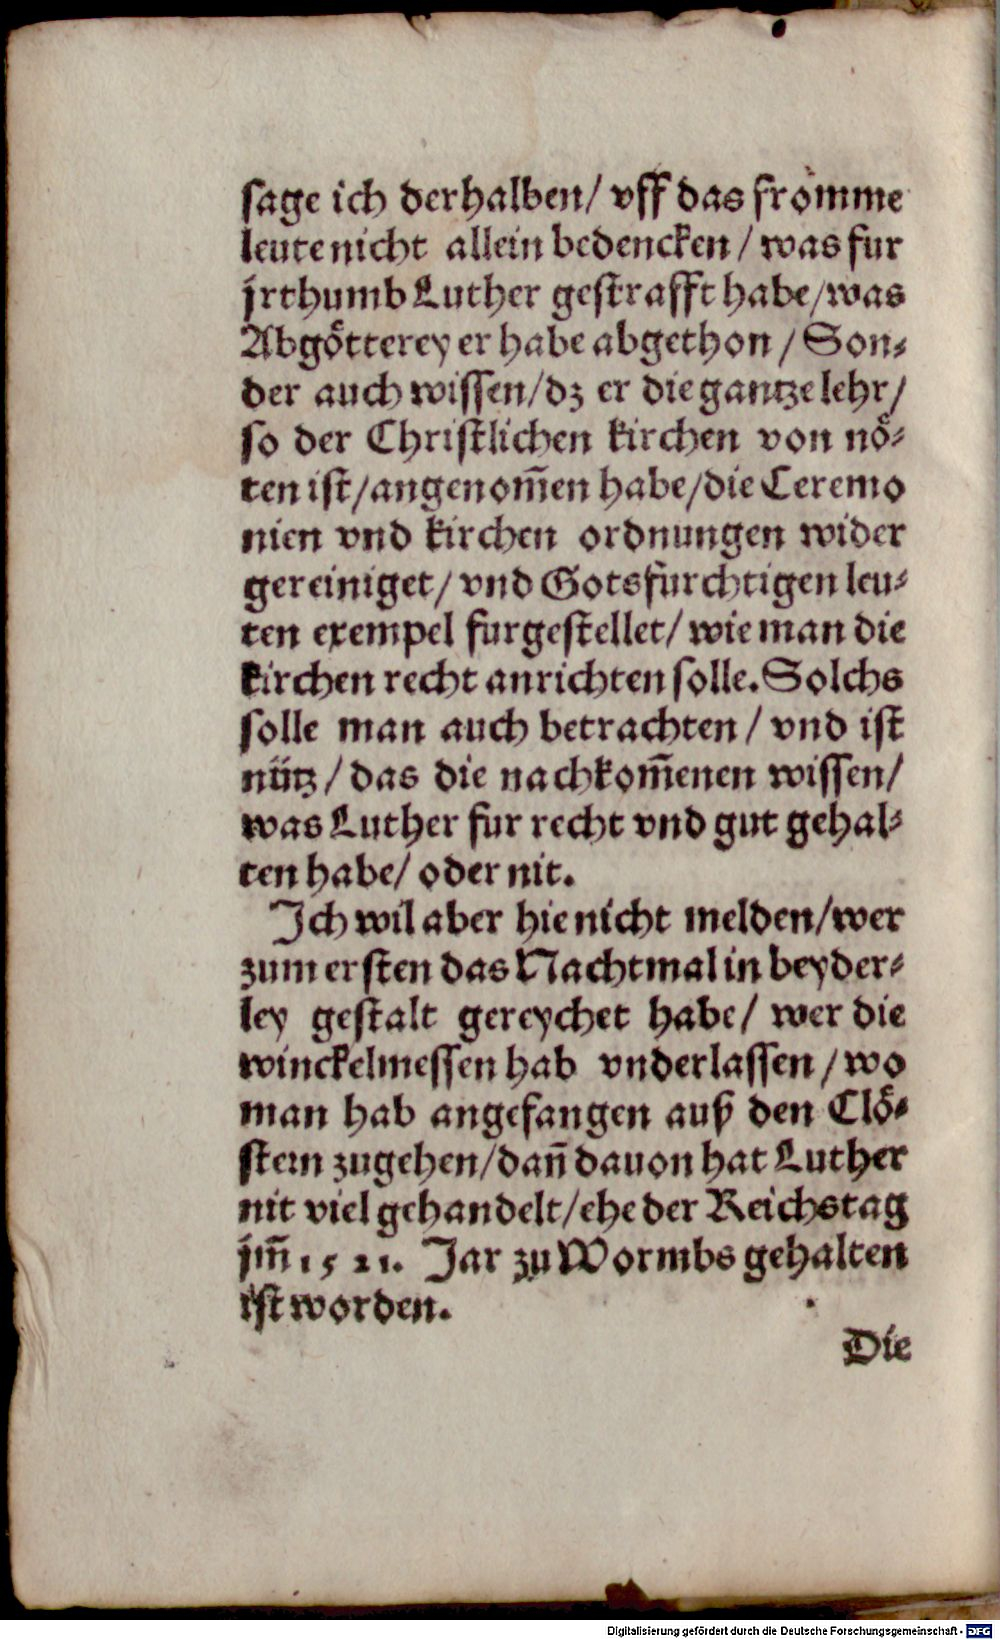 sage ich derhalben/ vff das frömme
leute nicht allein bedencken / was fur
jrthumb Luther gestrafft habe/was
Abgötterey er habe abgethon / Son⸗
der auch wissen/dz er die gantze lehr/
so der Christlichen kirchen von nö⸗
ten ist/angenom̃en habe/die Ceremo
nien vnd kirchen ordnungen wider
gereiniget/ vnd Gotsfurchtigen leu⸗
ten exempel furgestellet/ wie man die
kirchen recht anrichten solle. Solchs
solle man auch betrachten / vnd ist
nütz / das die nachkom̃enen wissen/
was Luther fur recht vnd gut gehal⸗
ten habe/ oder nit.
Ich wil aber hie nicht melden/wer
zum ersten das Nachtmal in beyder⸗
ley gestalt gereychet habe/ wer die
winckelmessen hab vnderlassen / wo
man hab angefangen auß den Clö⸗
stern zugehen/dañ dauon hat Luther
nit viel gehandelt/ehe der Reichstag
jm̃ 1521. Jar zu Wormbs gehalten
ist worden.
Die
Digitalisierung gefördert durch die Deutsche Forschungsgemeinschaft - DFG